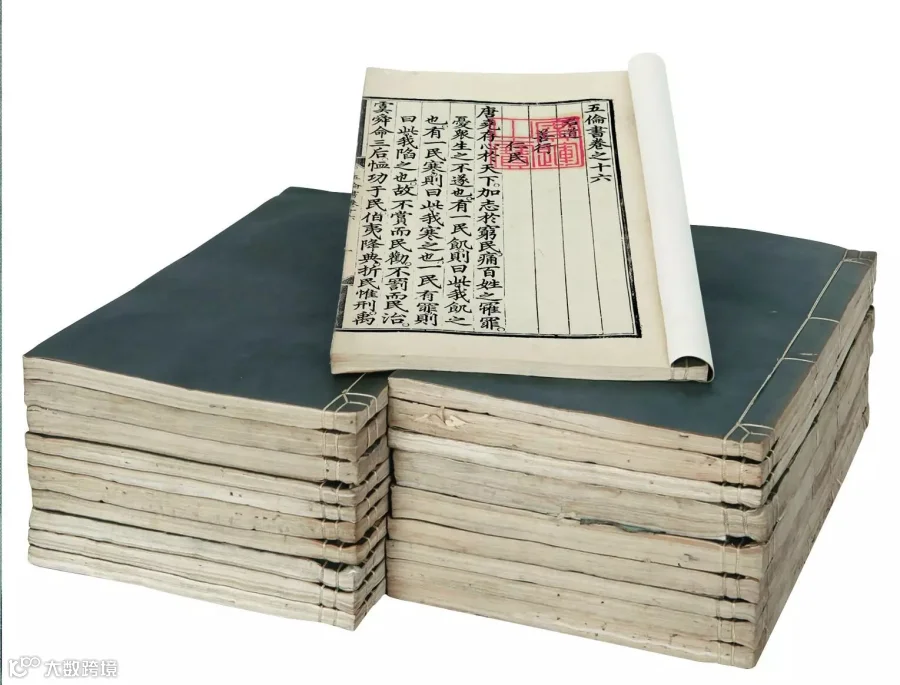 五倫書卷之十六
君道
善行
仁民
唐堯存心於天下。加志於窮民。痛百姓之罹罪。
憂衆生之不遂也。有一民飢則曰此我飢之
也有一民寒則曰此我寒之也一民有罪則
曰此我陷之也故不賞而民勸。不罰而民治。
虞舜命三后恤功于民伯夷降典折民惟刑。禹
五倫書卷十六
大数跨境